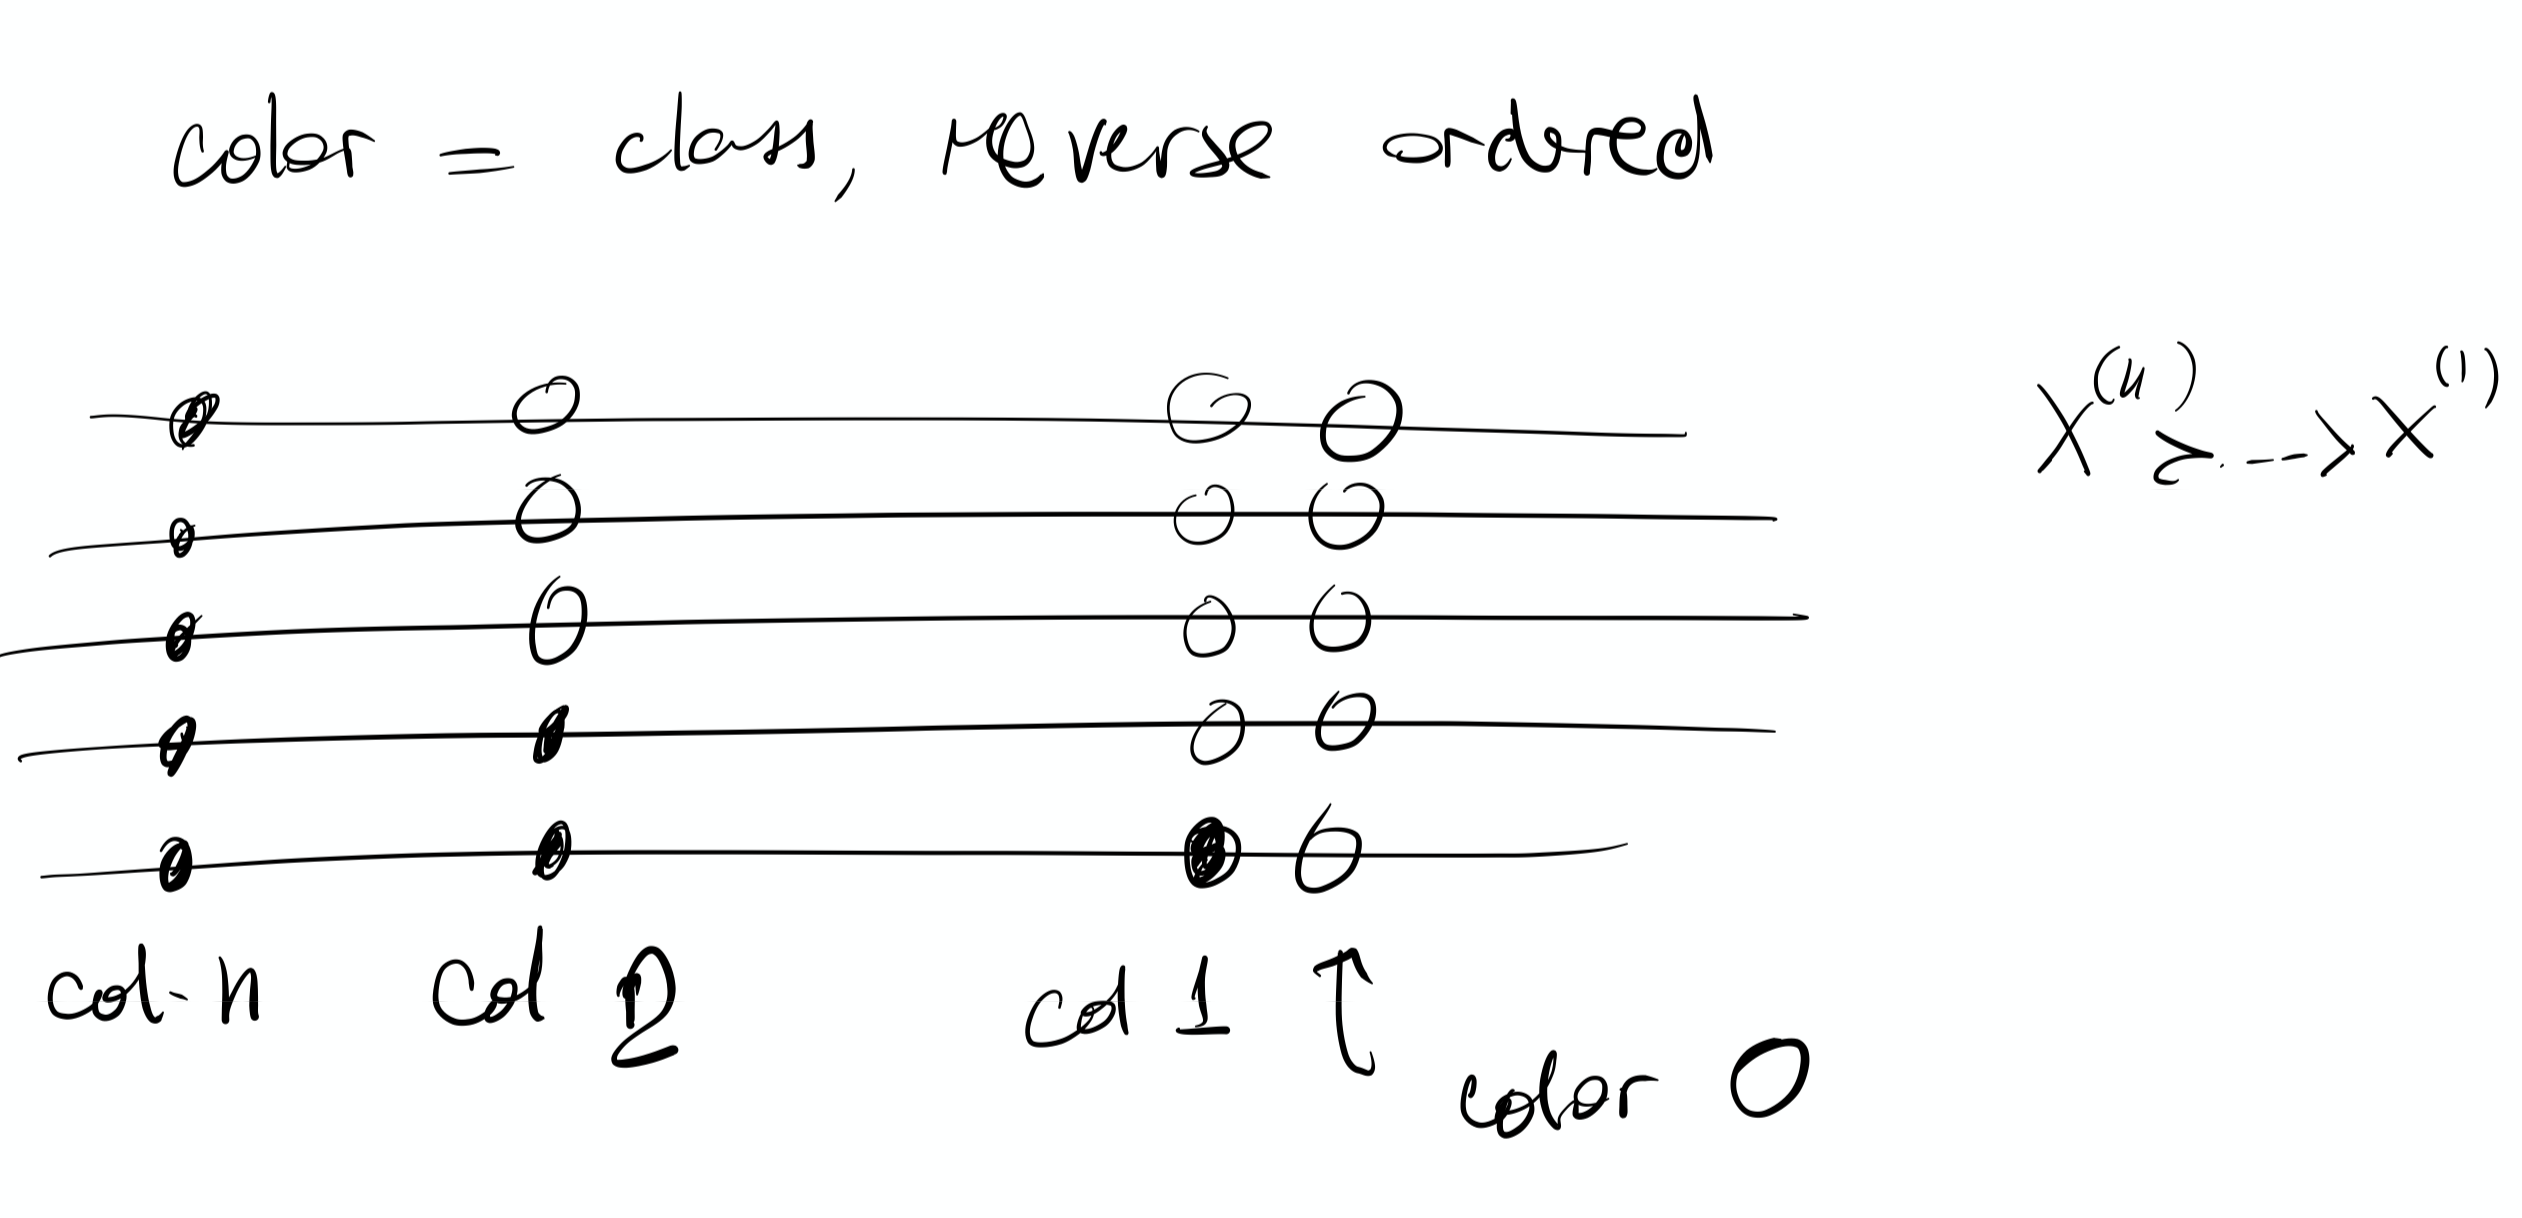 color = class, reverse ordered
X^(n) ≥ ---> X^(1)
col-n col 2 col 1 ↑
color 0